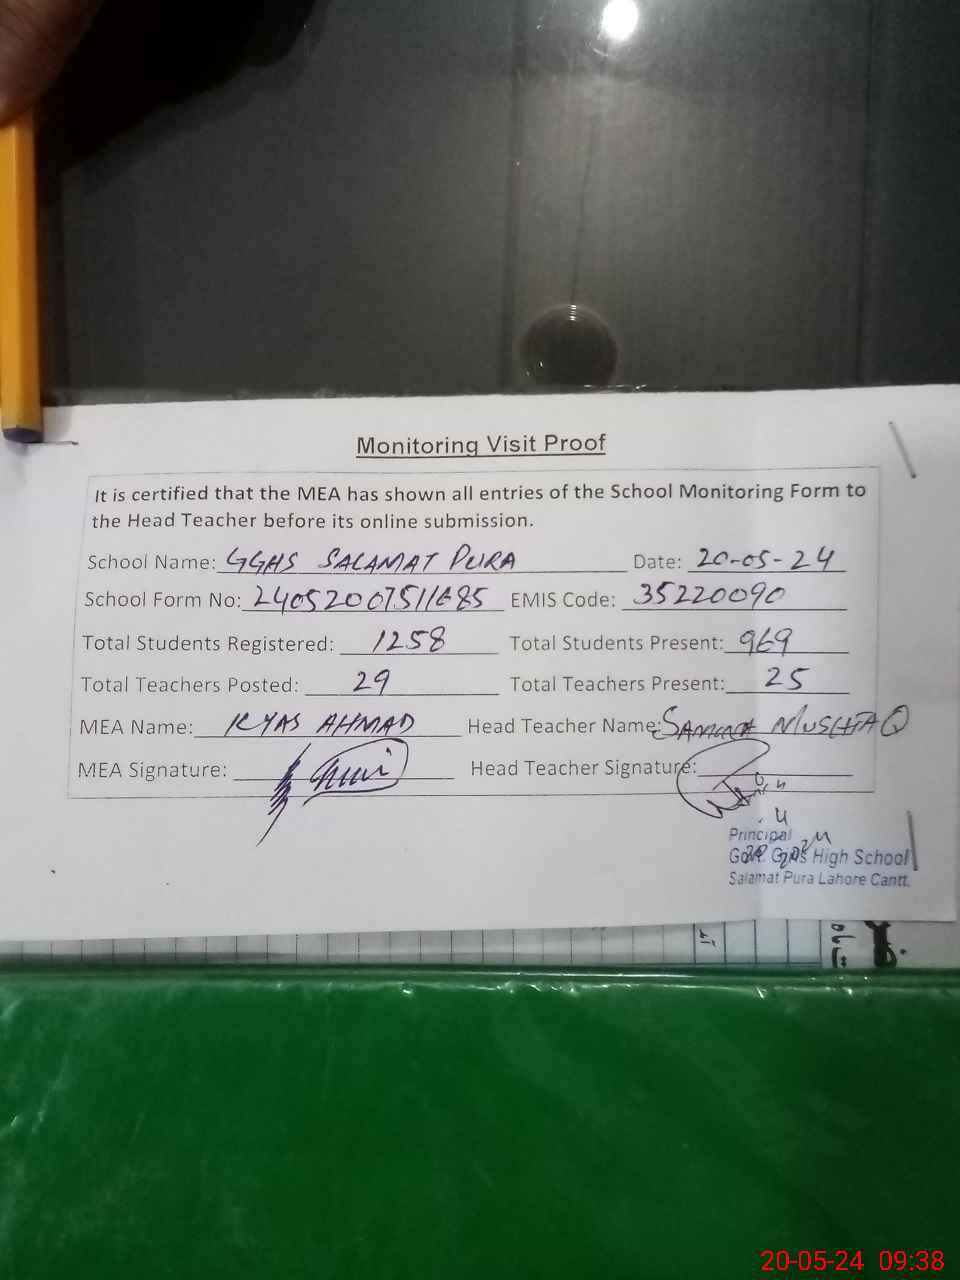 Monitoring Visit Proof
It is certified that the MEA has shown all entries of the School Monitoring Form to
the Head Teacher before its online submission.
School Name: GGHS SALAMAT PURA Date: 20-05-24
School Form No: 24052007511685 EMIS Code: 35220090
Total Students Registered: 1258 Total Students Present: 969
Total Teachers Posted: 29 Total Teachers Present: 25
MEA Name: ILYAS AHMAD Head Teacher Name: SAMINA MUSHTAQ
MEA Signature: Head Teacher Signature:
Principal
Govt. Girls High School
Salamat Pura Lahore Cantt.
20-05-24 09:38